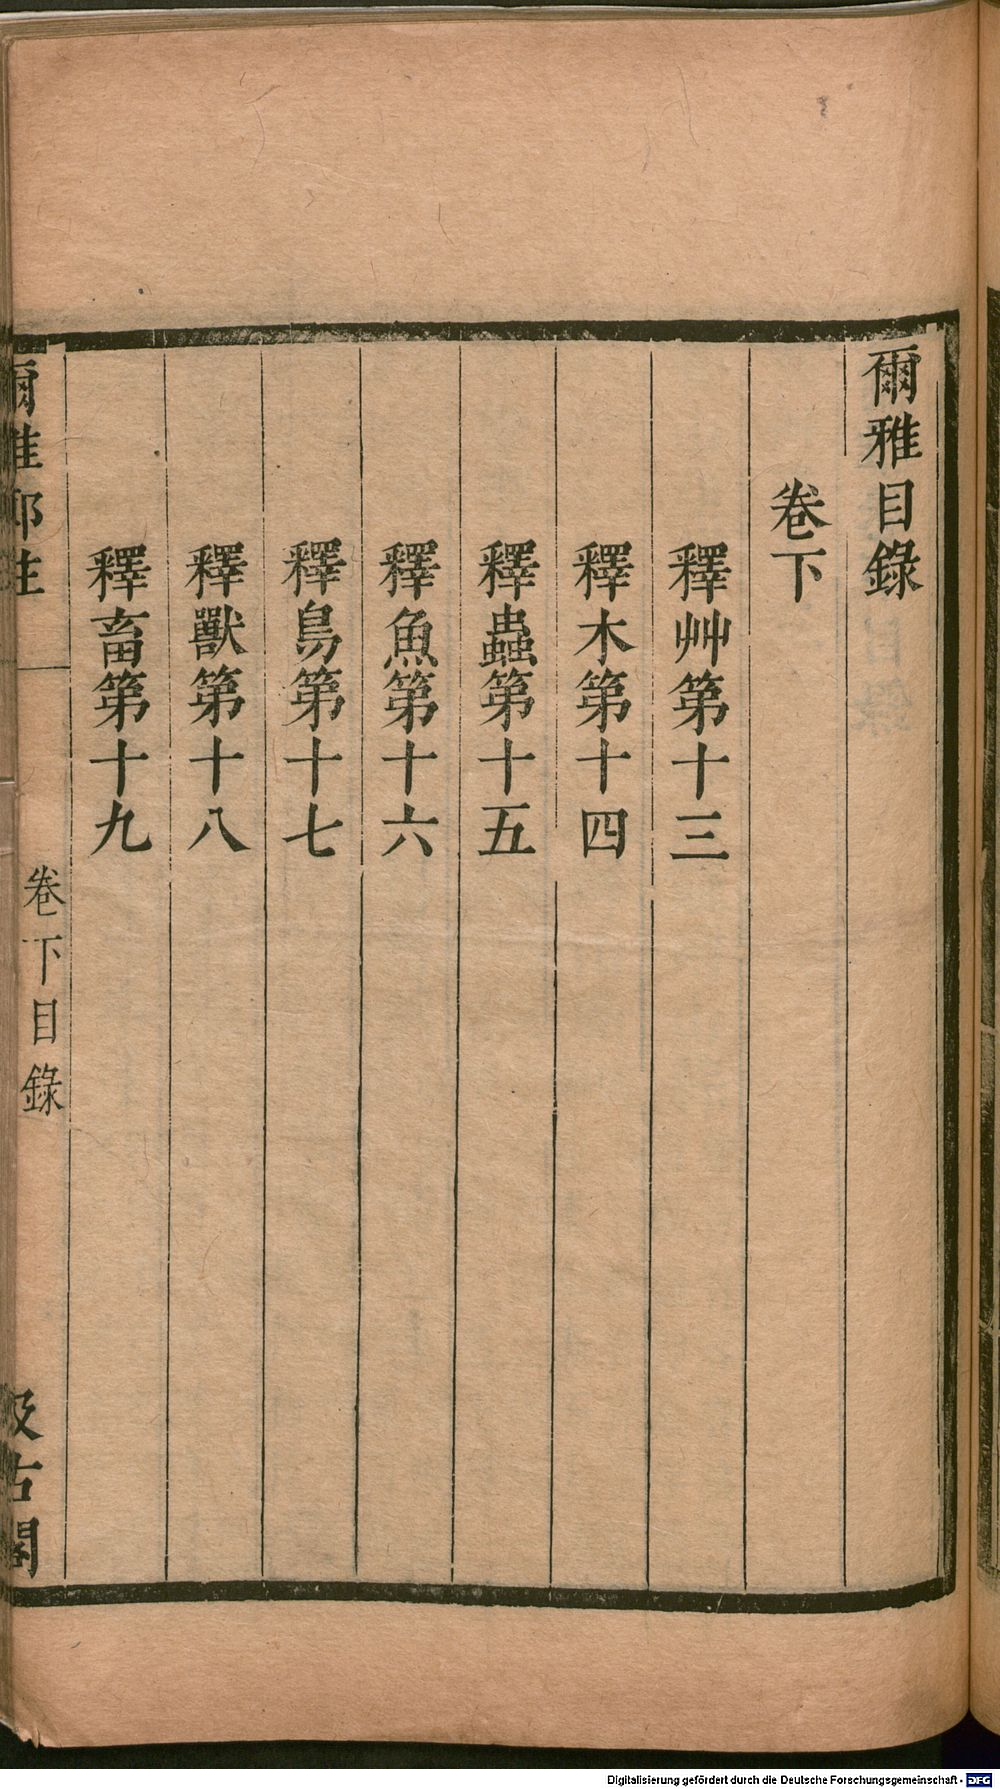 爾雅目錄
卷下
釋艸第十三
釋木第十四
釋蟲第十五
釋魚第十六
釋鳥第十七
釋獸第十八
釋畜第十九
爾雅郭注
卷下目錄
汲古閣
Digitalisierung gefördert durch die Deutsche Forschungsgemeinschaft - DFG